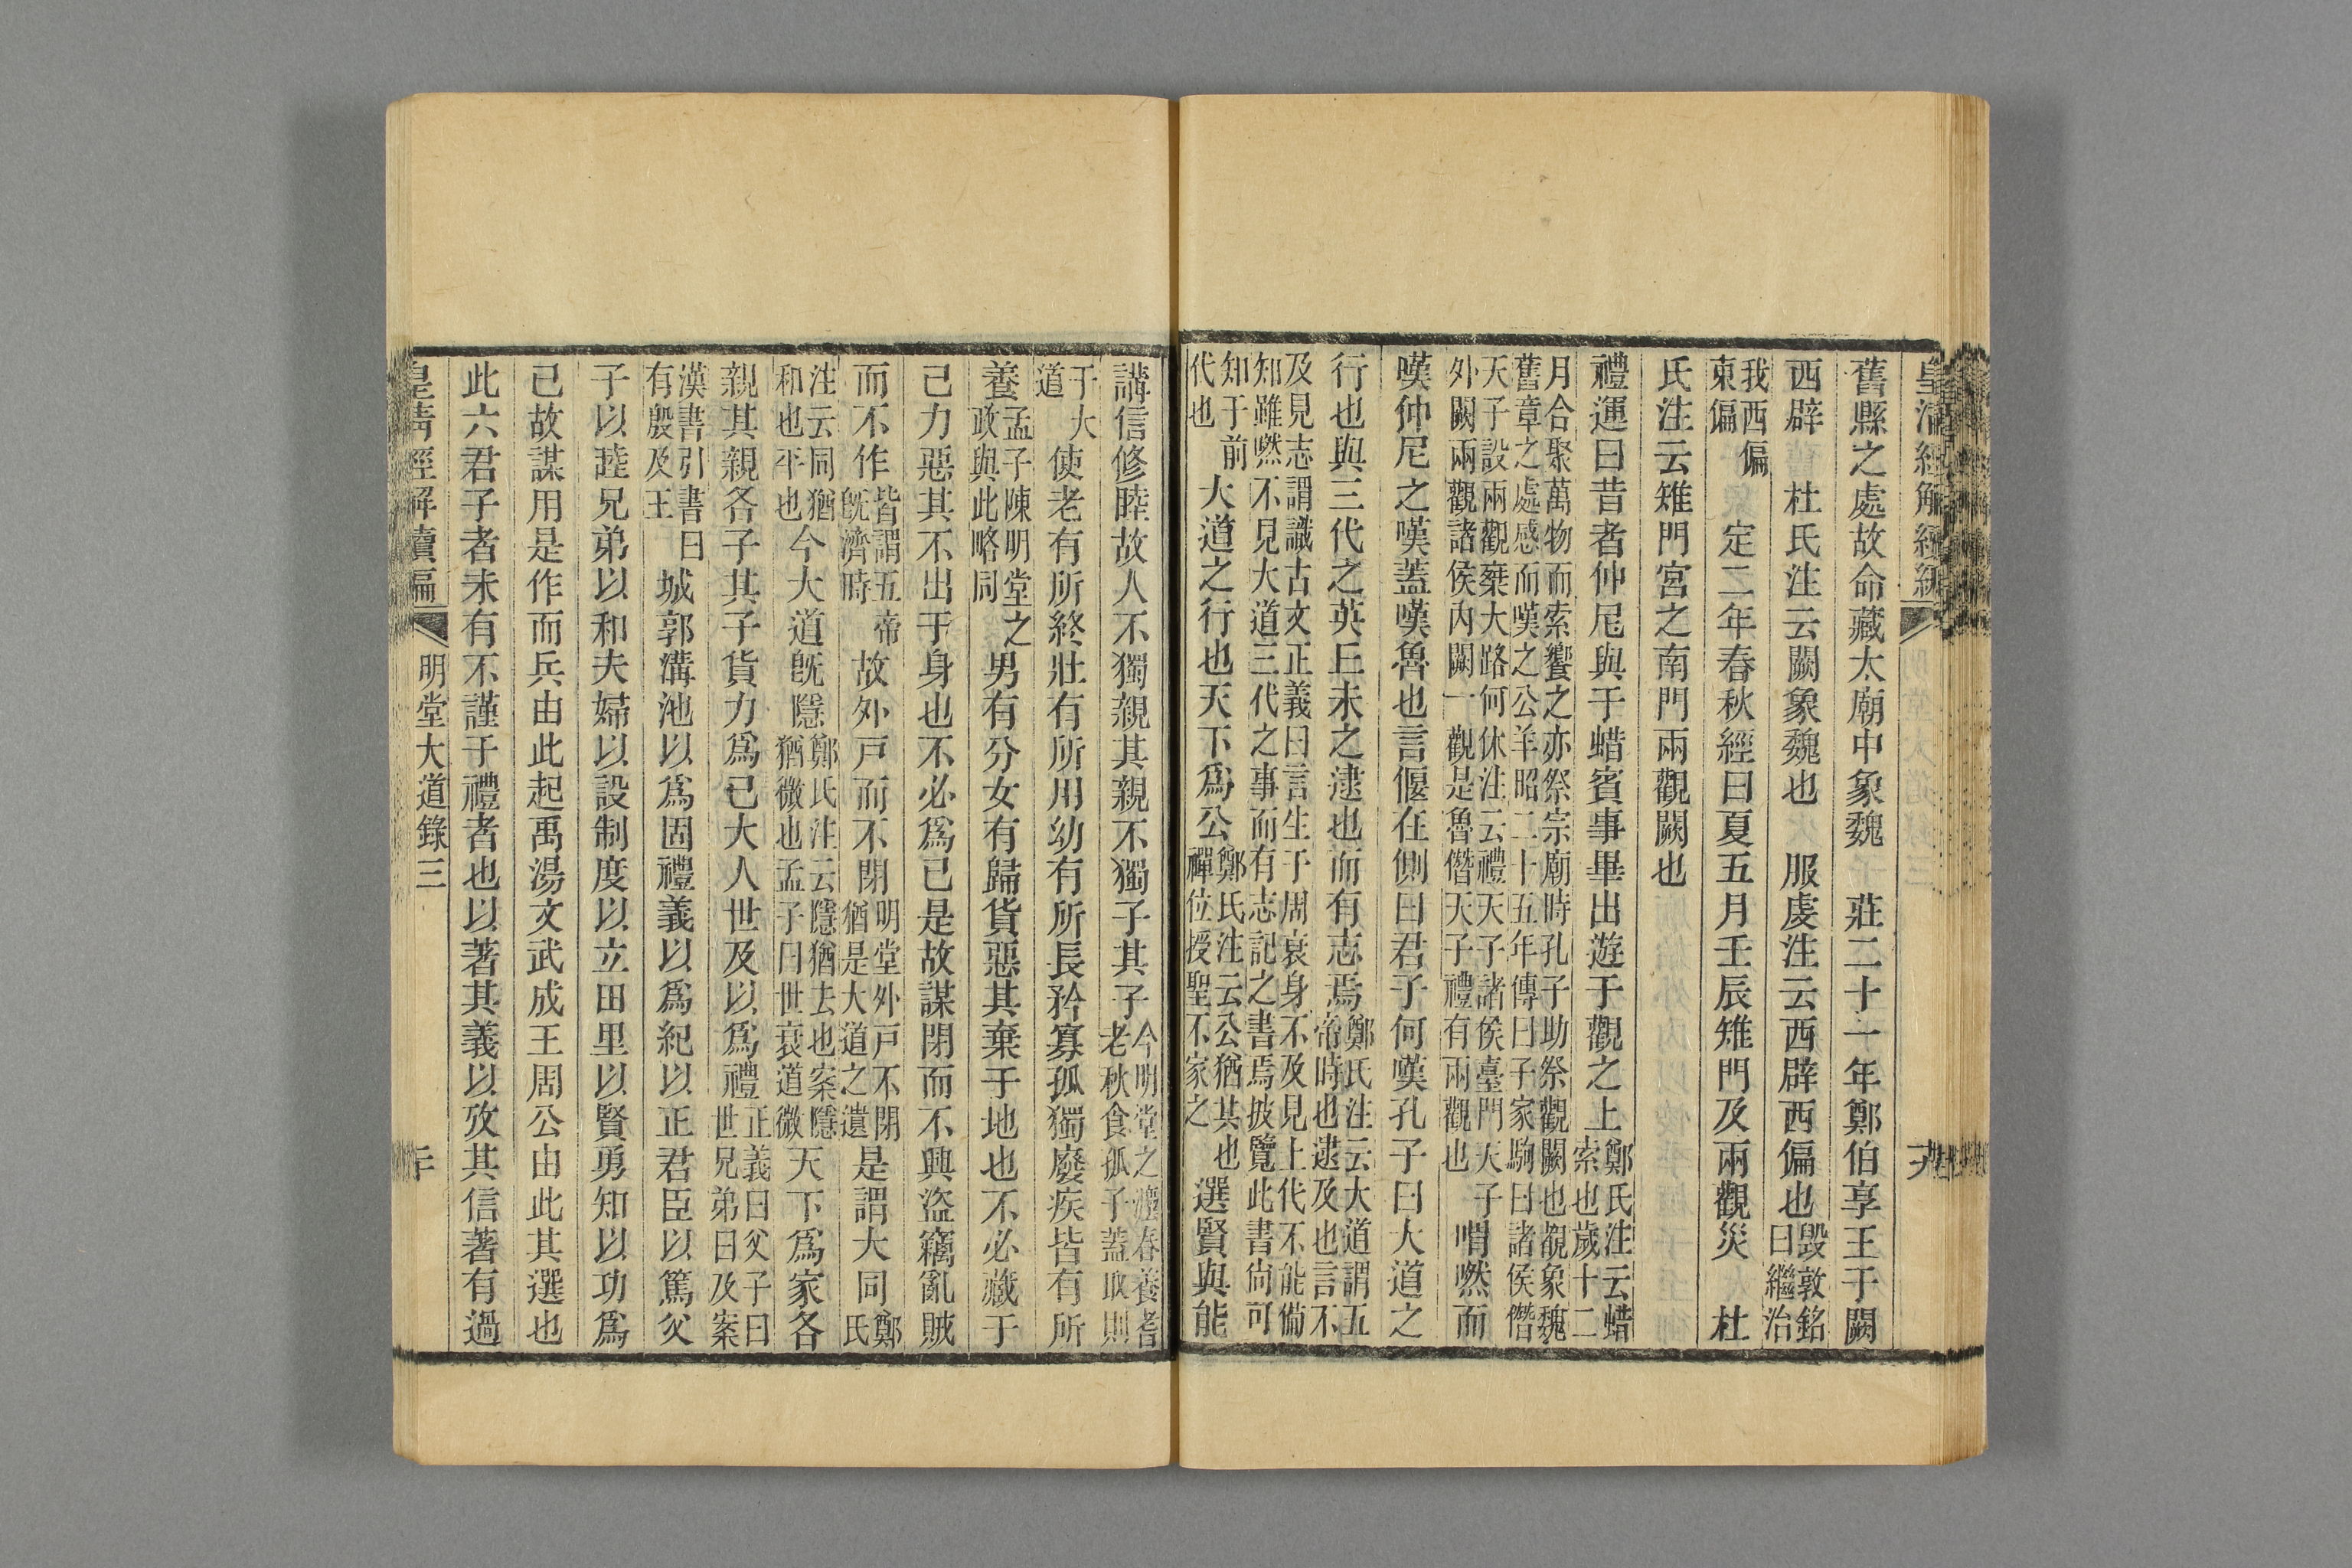 舊縣之處故命藏太廟中象魏　莊二十一年鄭伯享王于闕
西辟　杜氏注云闕象魏也　服虔注云西辟西偏也毀敦銘曰繼治
我西偏東偏　定二年春秋經曰夏五月壬辰雉門及兩觀災　杜
氏注云雉門宮之南門兩觀闕也
禮運曰昔者仲尼與于蜡賓事畢出遊于觀之上鄭氏注云蜡索也歲十二
月合聚萬物而索饗之亦祭宗廟時孔子助祭觀闕也觀象魏舊章之處感而嘆之公羊昭二十五年傳曰子家駒曰諸侯僭
天子設兩觀椉大路何休注云禮天子諸侯臺門天子外闕兩觀諸侯內闕一觀是魯僭天子禮有兩觀也喟然而
嘆仲尼之嘆蓋嘆魯也言偃在側曰君子何嘆孔子曰大道之
行也與三代之英丘未之逮也而有志焉鄭氏注云大道謂五帝時也逮及也言不
及見志謂識古文正義曰言生于周衰身不及見上代不能備知雖然不見大道三代之事而有志記之書焉披覽此書尙可
知于前代也大道之行也天下爲公鄭氏注云公猶其也禪位授聖不家之選賢與能
講信修睦故人不獨親其親不獨子其子今明堂之灋春養耆老秋食孤子蓋取則
于大道使老有所終壯有所用幼有所長矜寡孤獨廢疾皆有所
養孟子陳明堂之政與此略同男有分女有歸貨惡其棄于地也不必藏于
己力惡其不出于身也不必爲己是故謀閉而不興盜竊亂賊
而不作皆謂五帝旣濟時故外戸而不閉明堂外戸不閉猶是大道之遺是謂大同鄭氏
注云同猶和也平也今大道旣隱鄭氏注云隱猶去也案隱猶微也孟子曰世衰道微天下爲家各
親其親各子其子貨力爲己大人世及以爲禮正義曰父子曰世兄弟曰及案
漢書引書曰有殷及王城郭溝池以爲固禮義以爲紀以正君臣以篤父
子以睦兄弟以和夫婦以設制度以立田里以賢勇知以功爲
己故謀用是作而兵由此起禹湯文武成王周公由此其選也
此六君子者未有不謹于禮者也以著其義以攷其信著有過
皇淸經解續編　明堂大道錄三